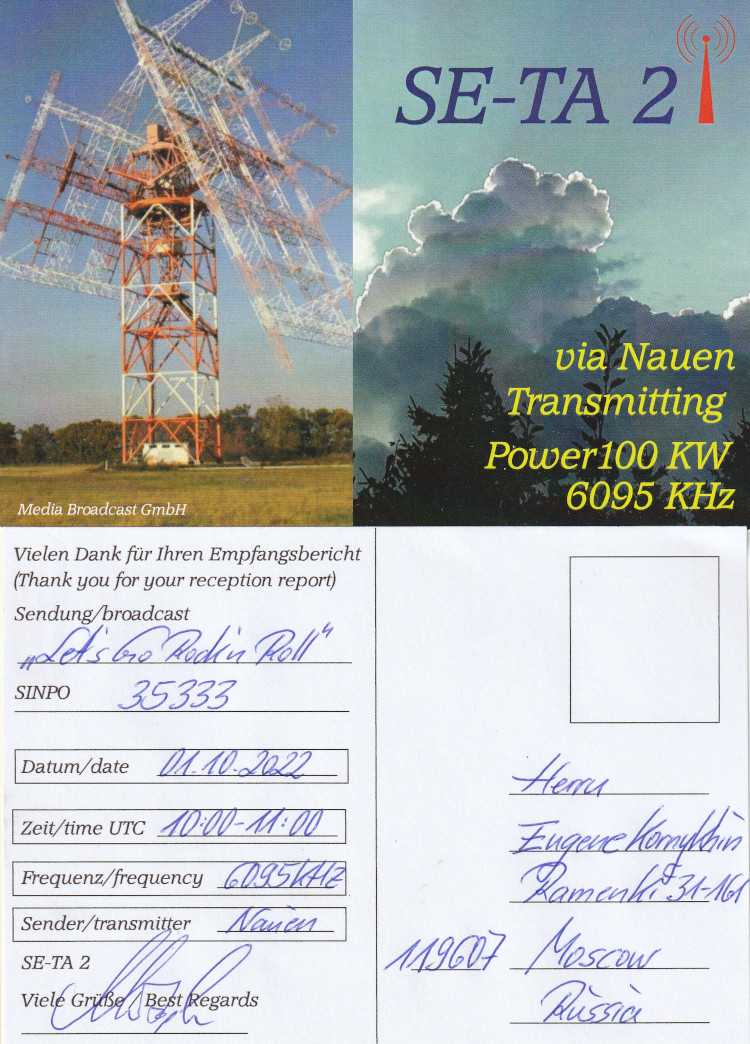 SE-TA 2
via Nauen
Transmitting
Power 100 KW
6095 KHz
Media Broadcast GmbH
Vielen Dank für Ihren Empfangsbericht
(Thank you for your reception report)
Sendung/broadcast
„Let's Go Rock'n Roll“
SINPO 35333
Datum/date 01.10.2022
Zeit/time UTC 10:00-11:00
Frequenz/frequency 6095 KHZ
Sender/transmitter Nauen
SE-TA 2
Viele Grüße / Best Regards
Herrn
Eugene
Ramenki 31-161
119607 Moscow
Russia